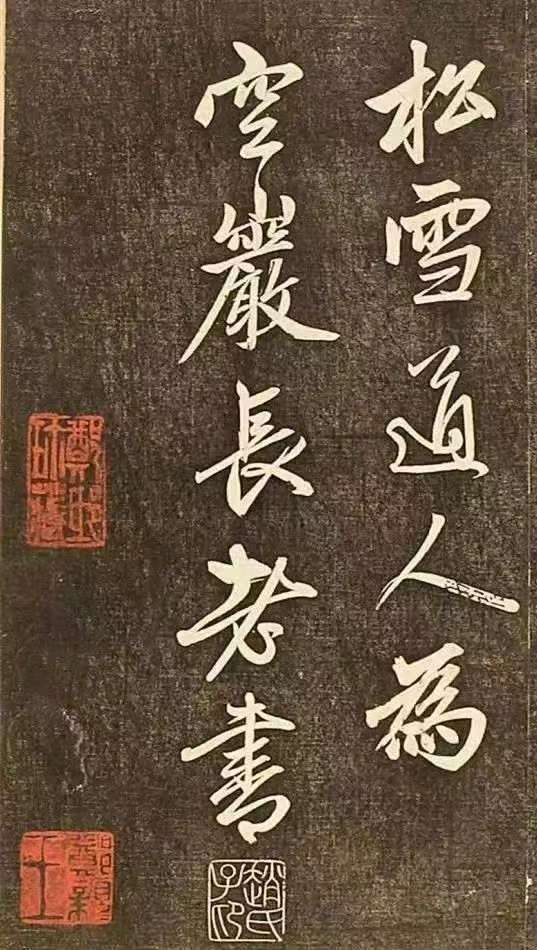 松雪道人為
空巖長老書
趙氏子卬